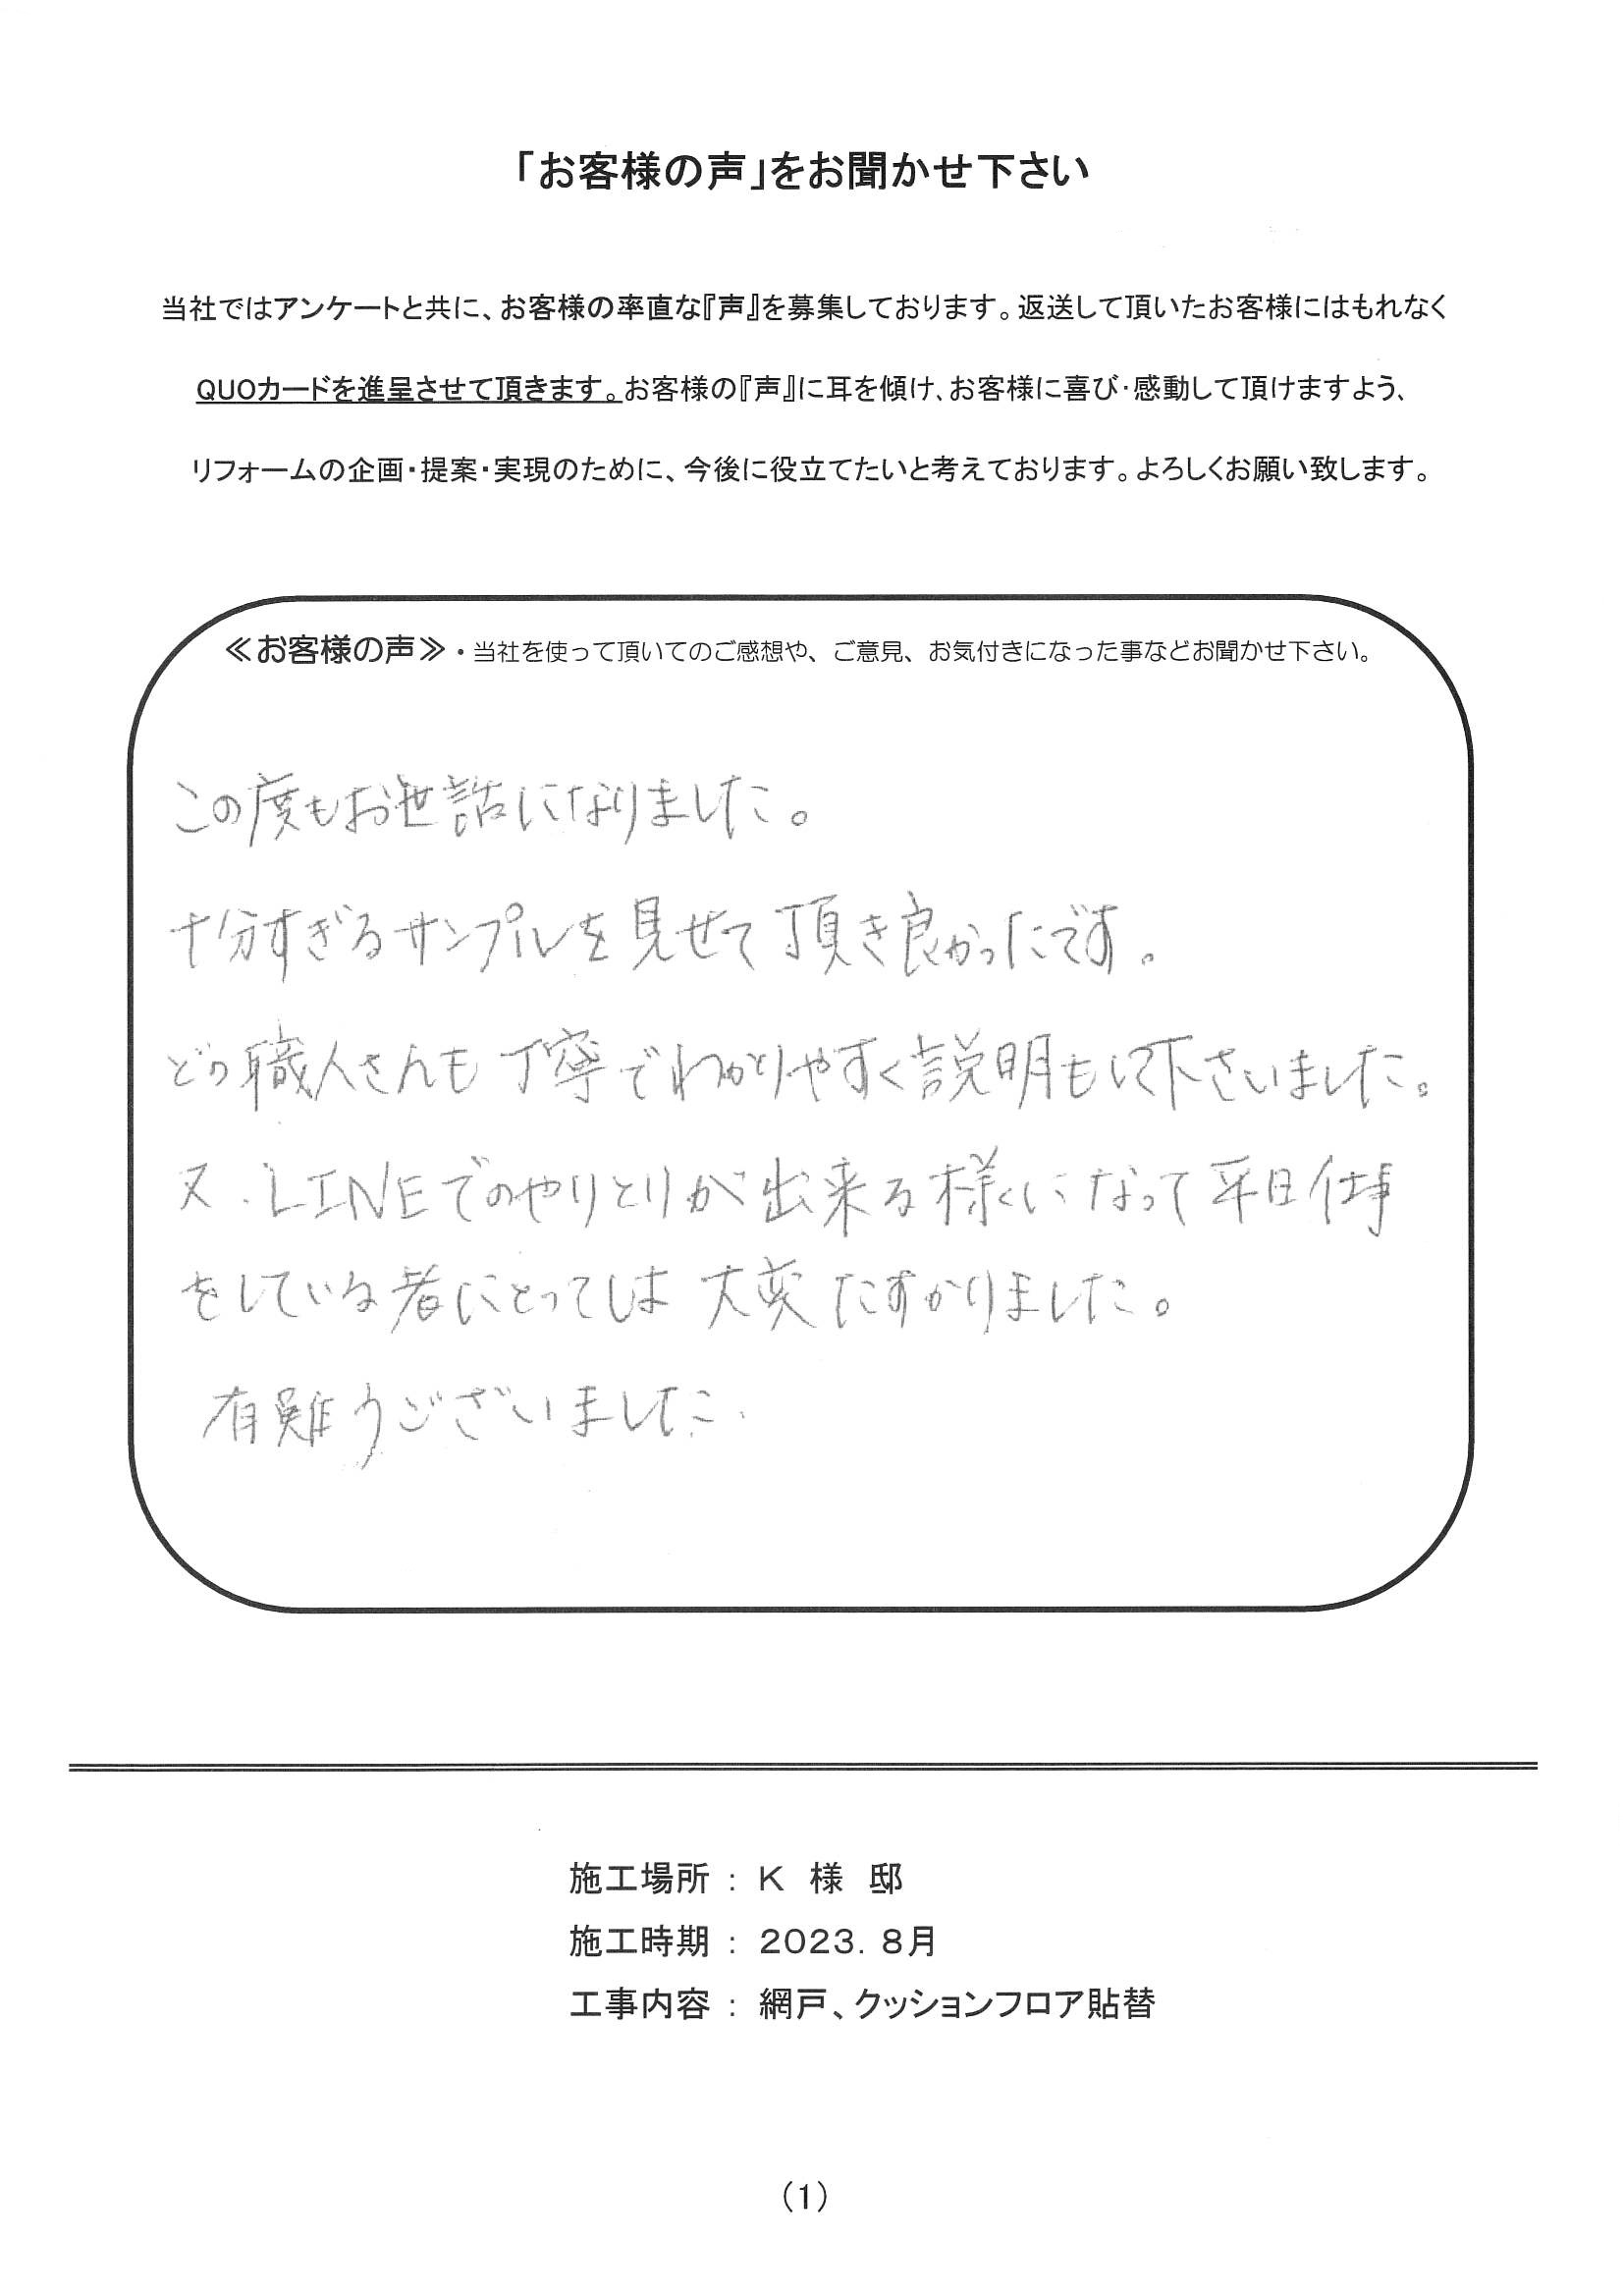 「お客様の声」をお聞かせ下さい
当社ではアンケートと共に、お客様の率直な『声』を募集しております。返送して頂いたお客様にはもれなく
QUOカードを進呈させて頂きます。お客様の『声』に耳を傾け、お客様に喜び・感動して頂けますよう、
リフォームの企画・提案・実現のために、今後に役立てたいと考えております。よろしくお願い致します。
≪お客様の声≫・当社を使って頂いてのご感想や、ご意見、お気付きになった事などお聞かせ下さい。
この度もお世話になりました。
十分すぎるサンプルを見せて頂き良かったです。
どの職人さんも丁寧でわかりやすく説明もして下さいました。
又、LINEでのやりとりが出来る様になって平日仕事
をしている者にとっては大変たすかりました。
有難うございました.
施工場所 : K 様 邸
施工時期 : 2023. 8月
工事内容 : 網戸、クッションフロア貼替
(1)